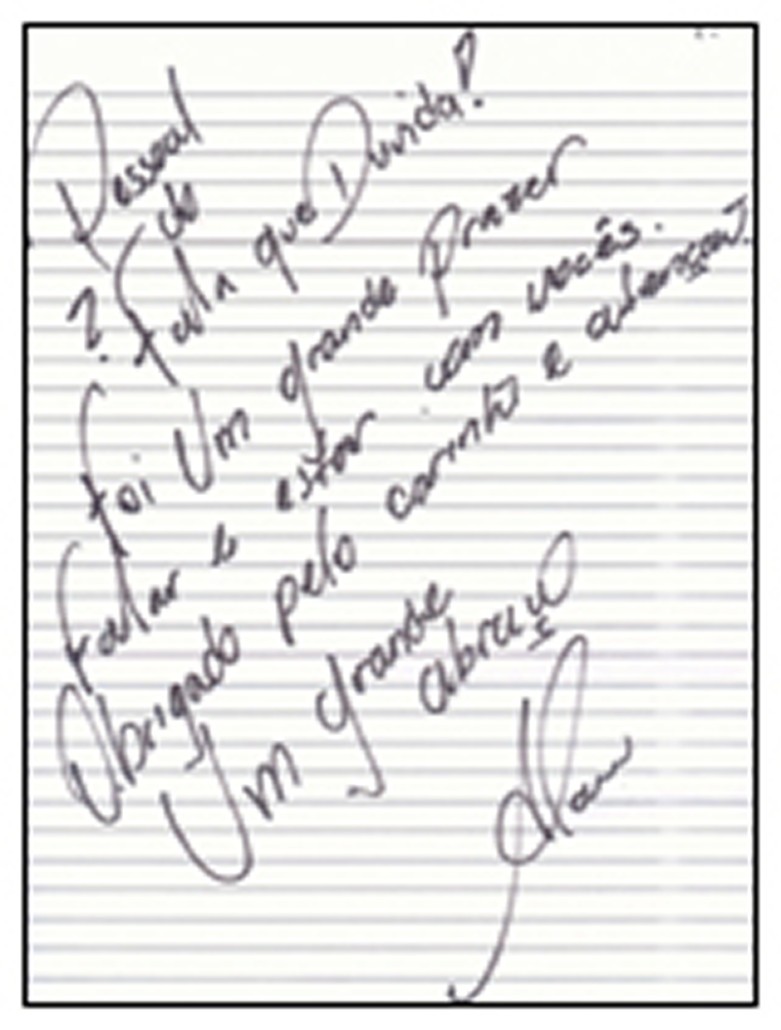 Pessoal do
? Fala que Duvida!
Foi Um grande Prazer
falar e estar com vocês.
Obrigado pelo carinho e atenção.
Um grande abraço
Alan